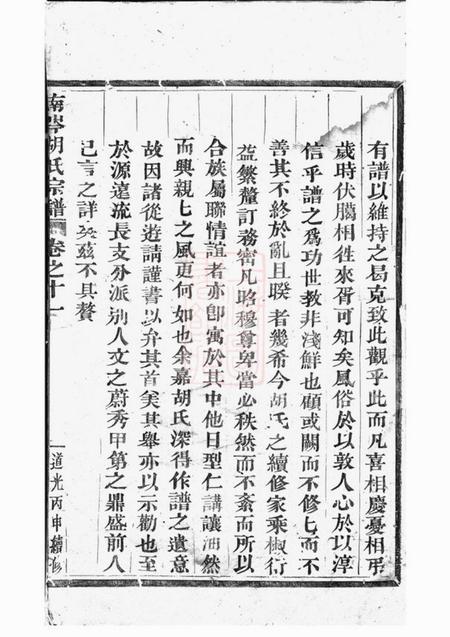 有譜以維持之曷克致此觀乎此而凡喜相慶憂相弔
歲時伏臘相徃來胥可知矣風俗於以敦人心於以淳
信乎譜之爲功世教非淺鮮也顧或闕而不修修而不
善其不終於亂且睽者幾希今胡氏之續修家乘椒衍
益繁釐訂務審凡昭穆尊卑當必秩然而不紊而所以
合族屬聯情誼者亦卽寓於其中他日型仁講讓油然
而興親七之風更何如也余嘉胡氏深得作譜之遺意
故因諸從遊請謹書以弁其首美其舉亦以示勸也至
於源遠流長支分派别人文之蔚秀甲第之鼎盛前人
已言之詳矣茲不具贅
南岑胡氏宗譜
卷之十一
一
道光丙申續修